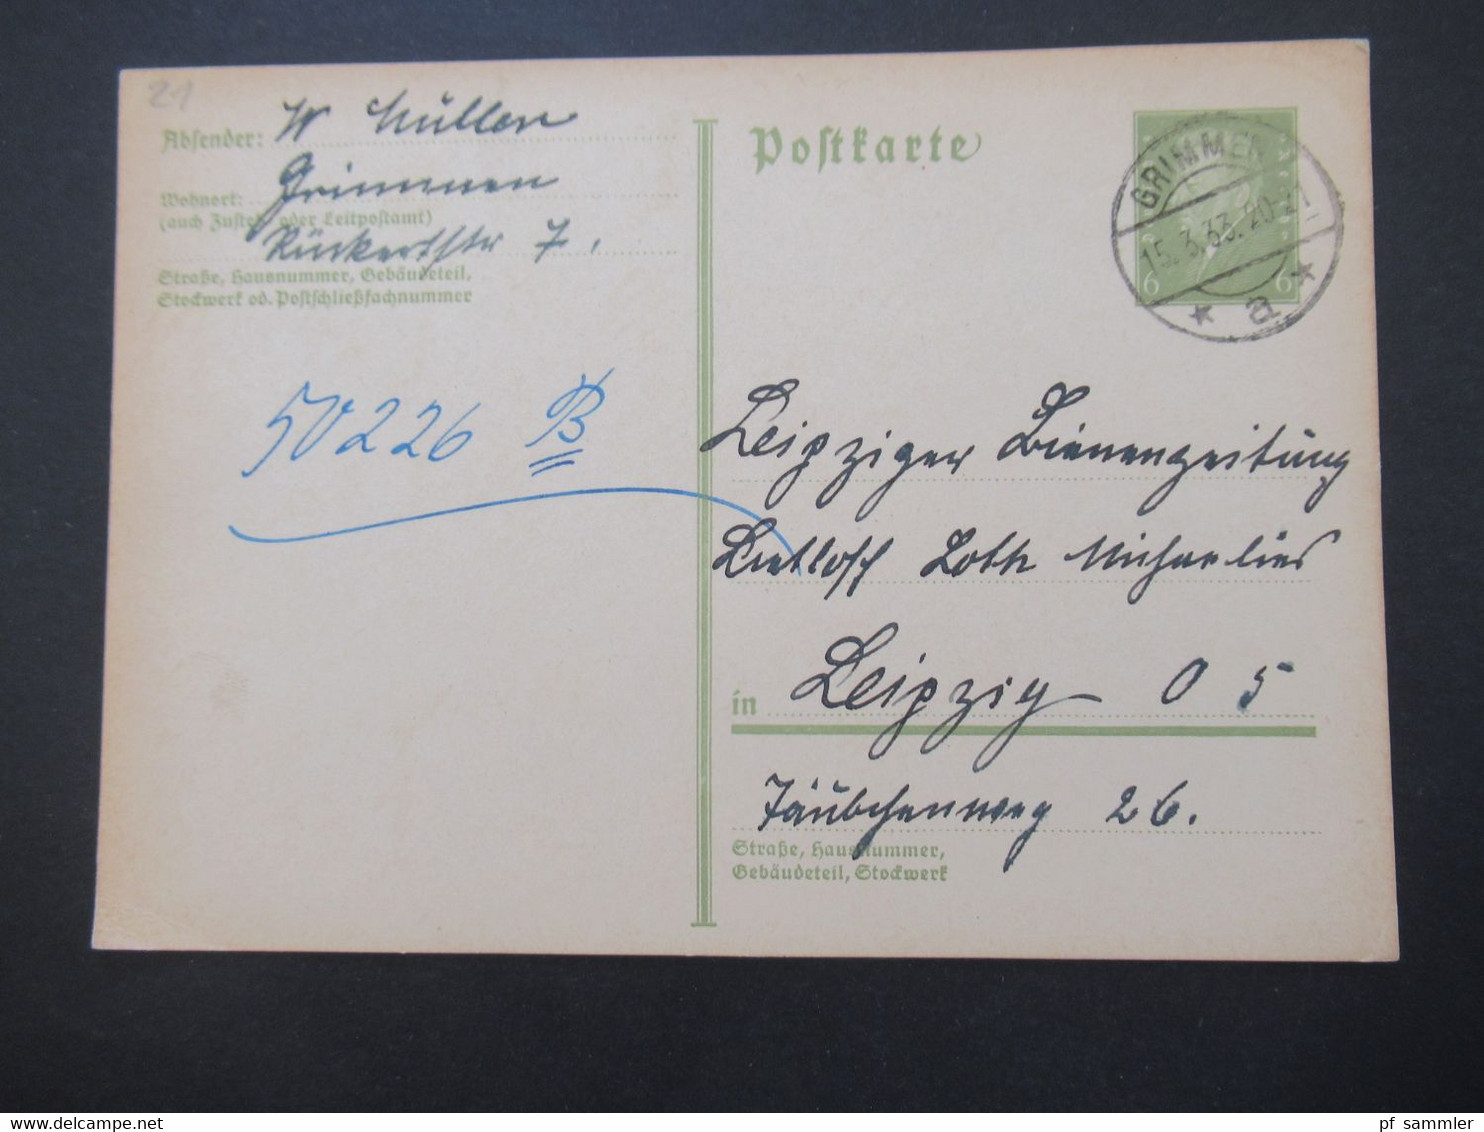 21
Absender: W Müller
Wohnort: Grimmen
(auch Zustell- oder Leitpostamt)
Rückertstr 7.
Straße, Hausnummer, Gebäudeteil,
Stockwerk od. Postschließfachnummer
50226 B
Postkarte
GRIMMEN
15.3.33.20-21
* a *
6 6
Leipziger Bienenzeitung
Liedloff Loth Michaelis
in Leipzig O 5
Täubchenweg 26.
Straße, Hausnummer,
Gebäudeteil, Stockwerk
pf_sammler